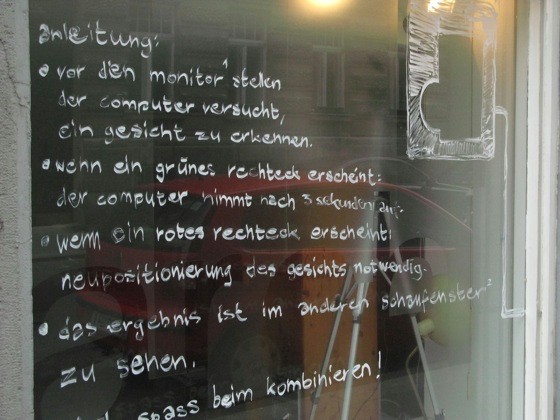 anleitung:
• vor den monitor¹ stellen
der computer versucht,
ein gesicht zu erkennen.
• wenn ein grünes rechteck erscheint:
der computer nimmt nach 3 sekunden auf.
• wenn ein rotes rechteck erscheint:
neupositionierung des gesichts notwendig.
• das ergebnis ist im anderen schaufenster²
zu sehen.
spass beim kombinieren!